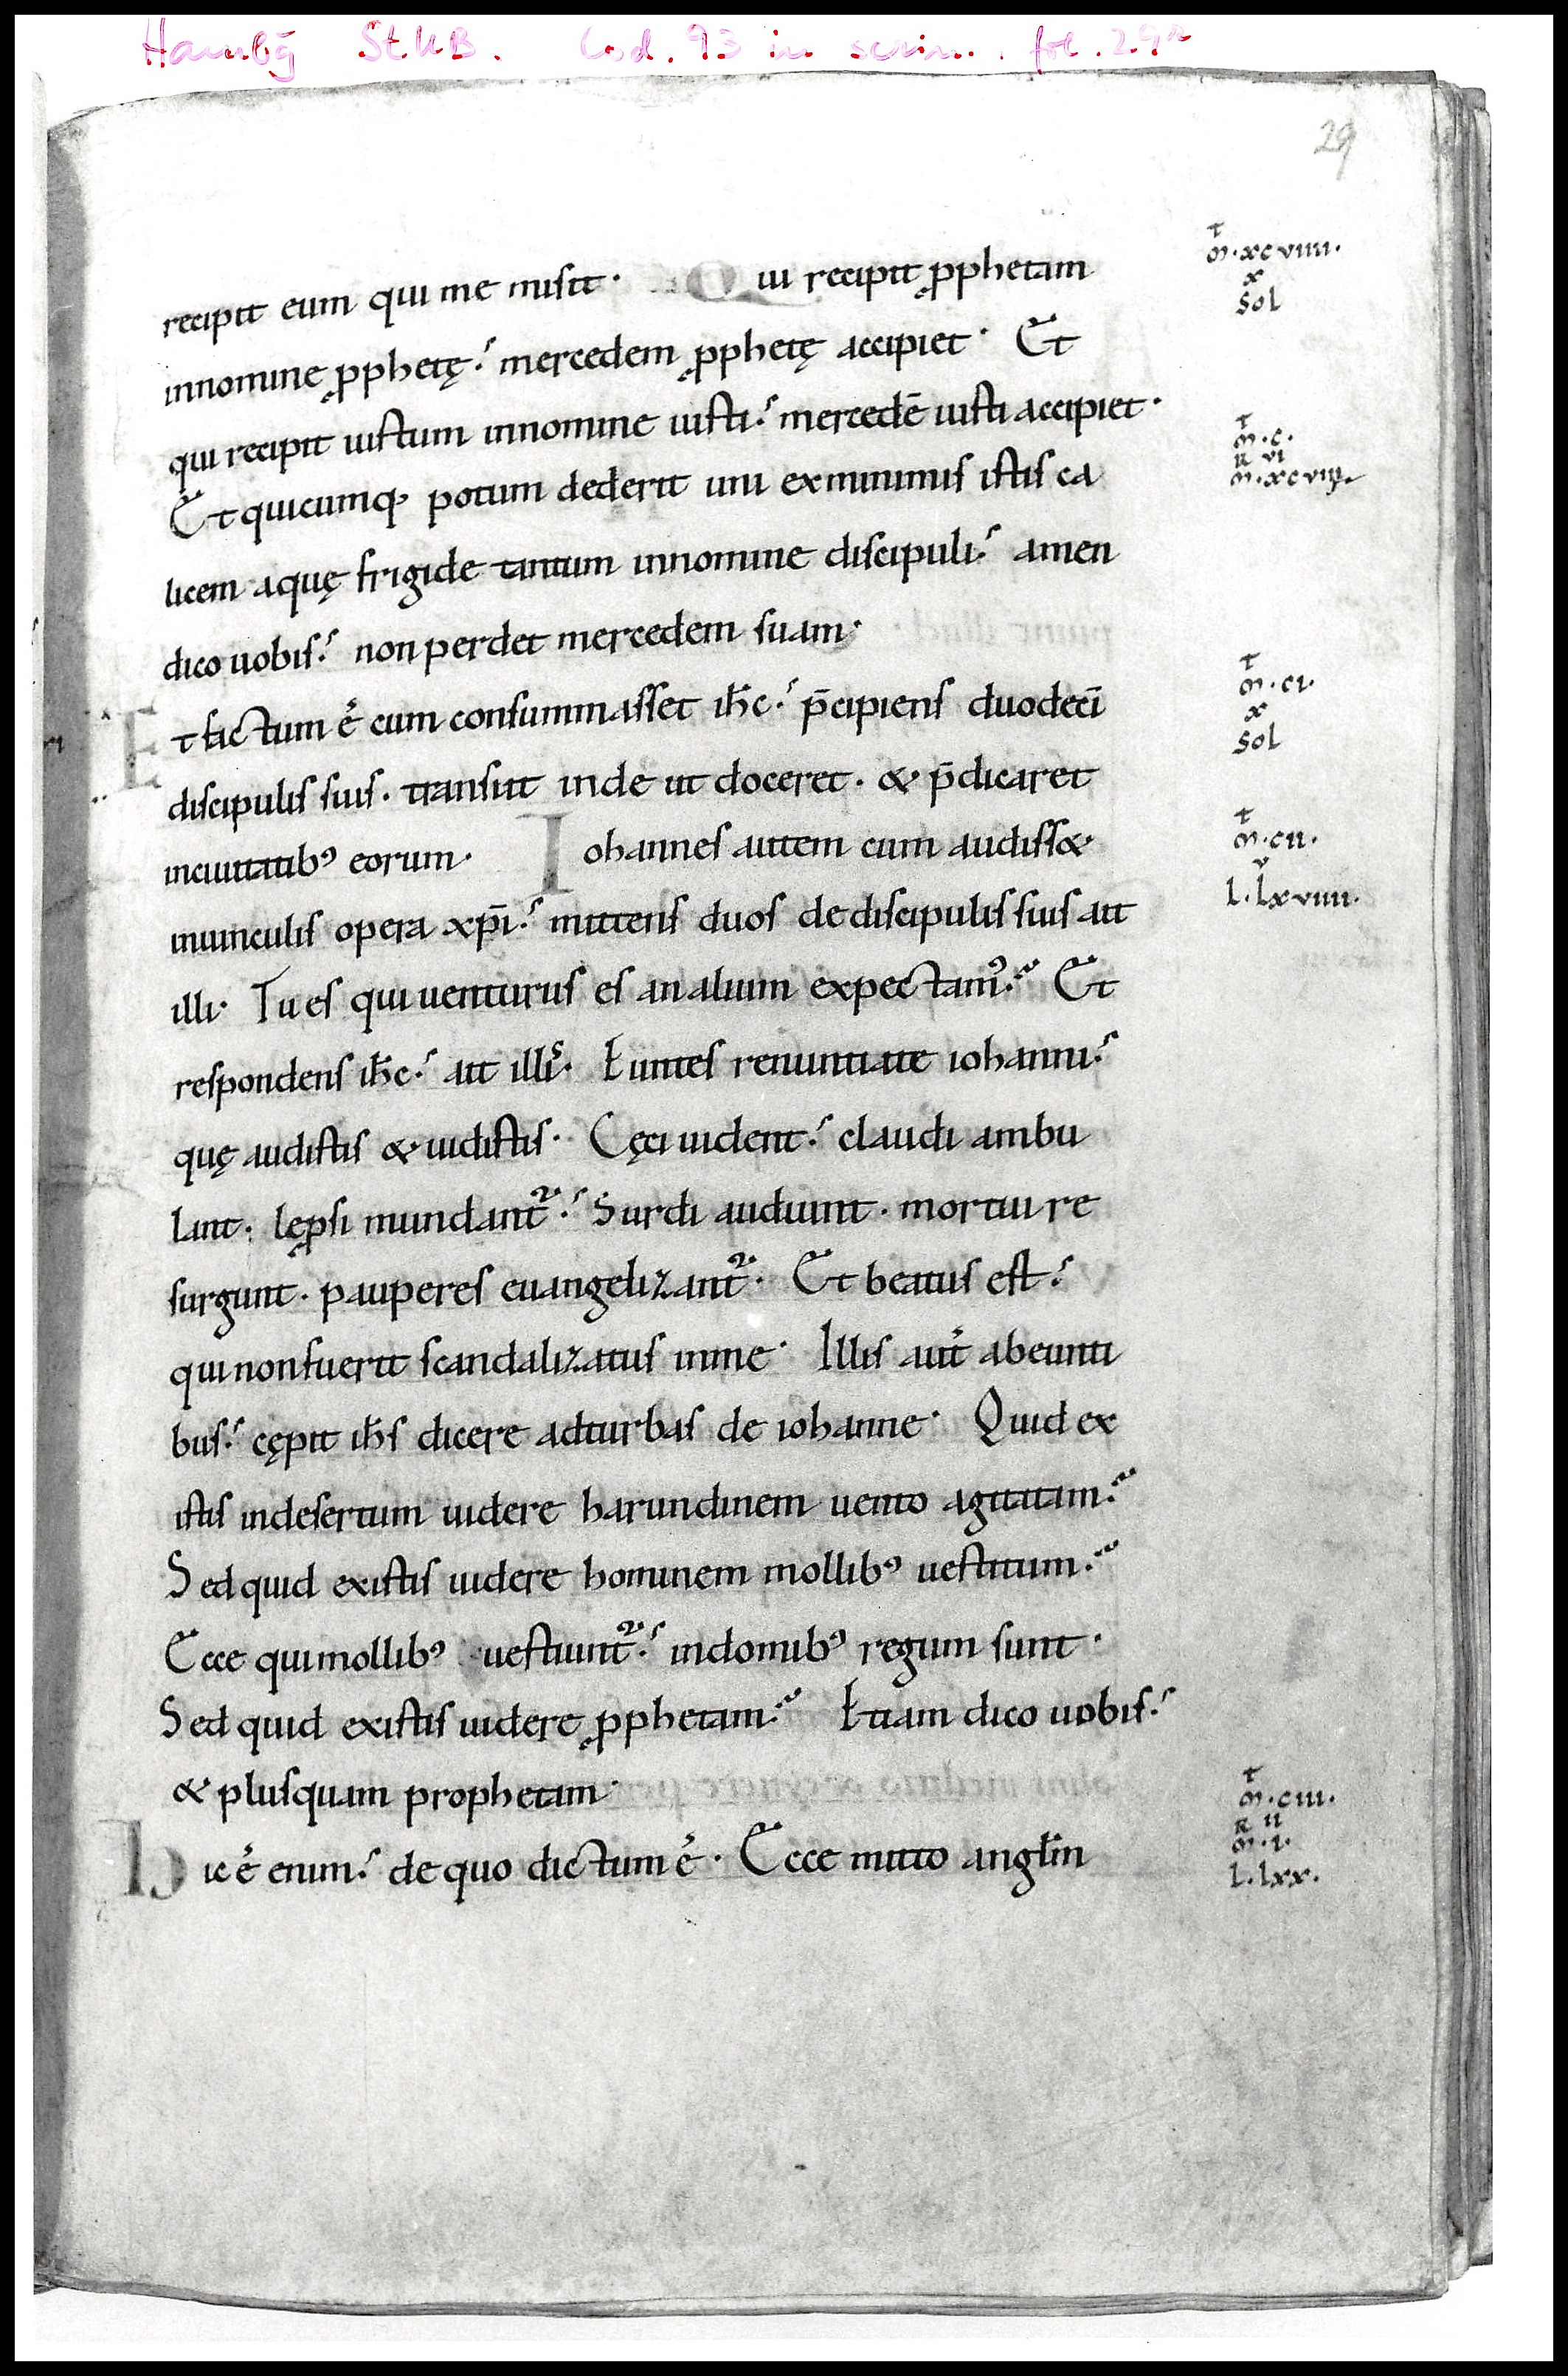 Hambg̅ StUB. Cod. 93 in scrin. fol. 29r
29
recipit eum qui me misit· Qui recipit ꝓphetam
innomine ꝓphetę· mercedem ꝓphetę accipiet· Et
qui recipit iustum innomine iusti· mercedē iusti accipiet·
Et quicumq; potum dederit uni exminimis istis ca
licem aquę frigide tantum innomine discipuli· amen
dico uobis· non perdet mercedem suam·
Et factum ē cum consummasset ih̅c· p̄cipiens duodecī
discipulis suis· transiit inde ut doceret· & p̄dicaret
inciuitatibꝰ eorum· Iohannes autem cum audiss&·
inuinculis opera xp̅i· mittens duos de discipulis suis ait
illi· Tu es qui uenturus es an alium expectamꝰ· Et
respondens ih̅c· ait illis· Euntes renuntiate iohanni·
quę audistis & uidistis· Cęci uident· claudi ambu
lant· lępsi mundant᷑· Surdi audiunt· mortui re
surgunt· pauperes euangelizant᷑· Et beatus est·
qui non fuerit scandalizatus inme· Illis aut̅ abeunti
bus· cępit ih̅s dicere adturbas de iohanne· Quid ex
istis indesertum uidere harundinem uento agitatam·
Sed quid existis uidere hominem mollibꝰ uestitum·
Ecce qui mollibꝰ uestiunt᷑· indomibꝰ regum sunt·
Sed quid existis uidere ꝓphetam· Etiam dico uobis·
& plusquam prophetam·
Hic ē enim· de quo dictum ē· Ecce mitto angl̅m
m̅t·xcviiii·
x
sol
m̅t·c·
R vi
m·xcviii·
m̅t·ci·
x
sol
m̅t·cii·
v
l·lxviiii·
m̅t·ciii·
R ii
m·i·
l·lxx·